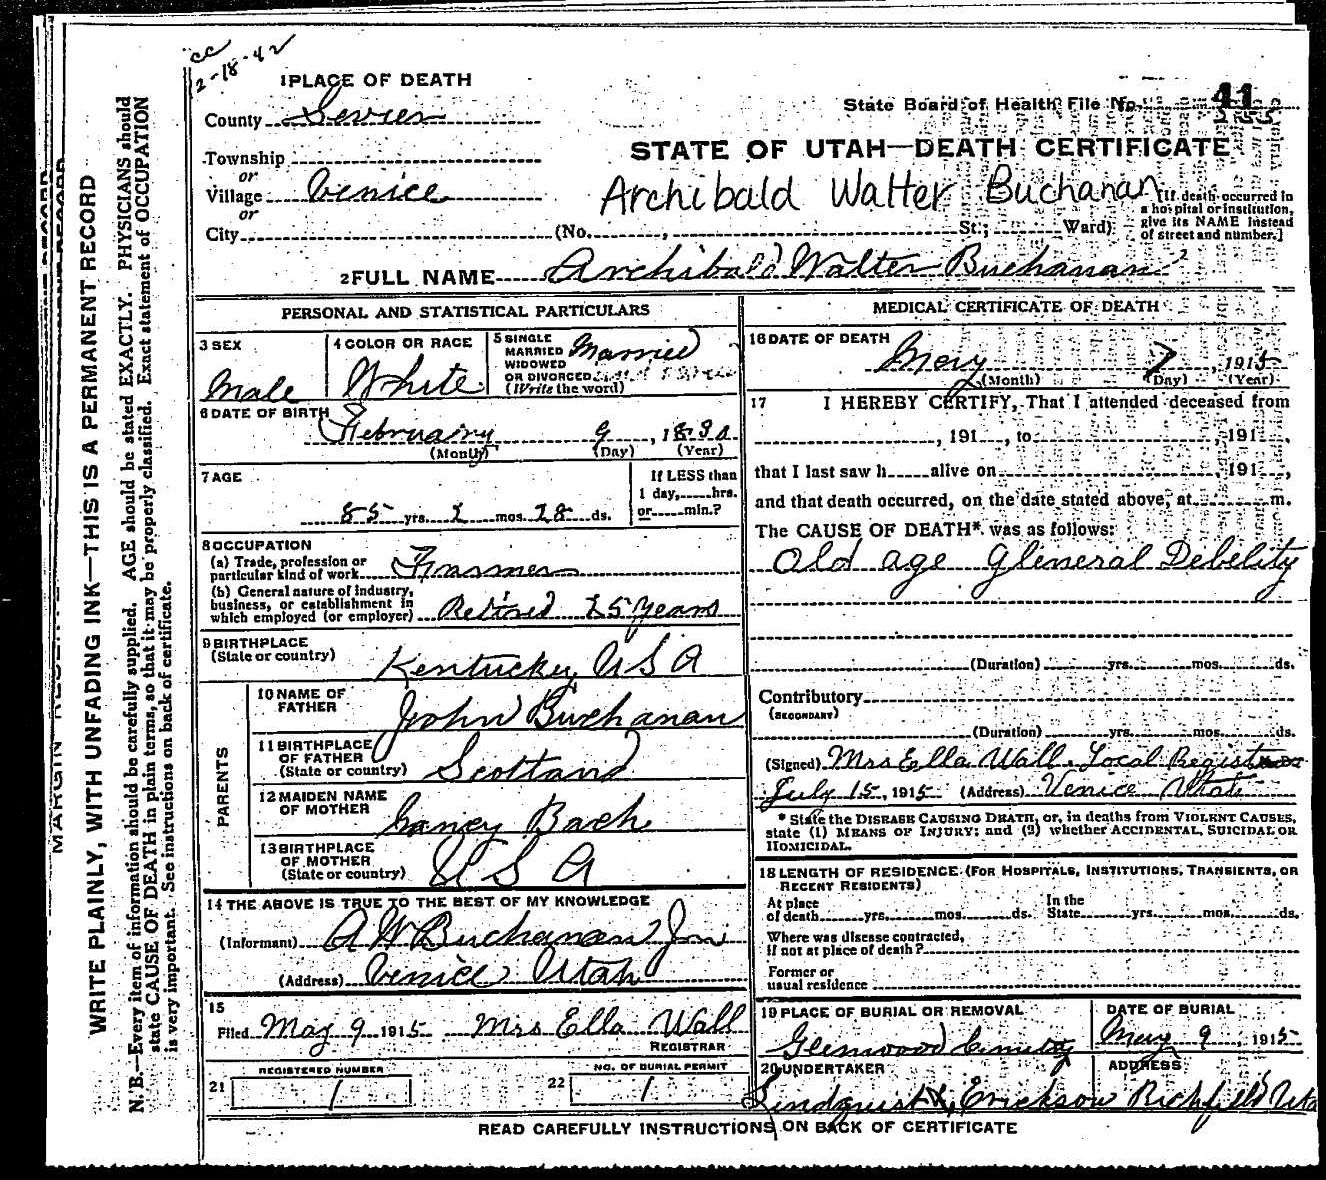 cc
2-18-42
1 PLACE OF DEATH
County Sevier
Township
or
Village Venice
or
City
State Board of Health File No. 41
STATE OF UTAH—DEATH CERTIFICATE
Archibald Walter Buchanan
[If death occurred in a hospital or institution, give its NAME instead of street and number.]
(No. , St; Ward)
2 FULL NAME Archibald Walter Buchanan
PERSONAL AND STATISTICAL PARTICULARS
3 SEX
Male
4 COLOR OR RACE
White
5 SINGLE
MARRIED
WIDOWED
OR DIVORCED
(Write the word)
Married
6 DATE OF BIRTH
February 9, 1830
(Month) (Day) (Year)
7 AGE
85 yrs. 2 mos. 28 ds.
If LESS than
1 day, hrs.
or min.?
8 OCCUPATION
(a) Trade, profession or
particular kind of work Farmer
(b) General nature of industry,
business, or establishment in
which employed (or employer) Retired 25 years
9 BIRTHPLACE
(State or country)
Kentucky U S A
PARENTS
10 NAME OF
FATHER
John Buchanan
11 BIRTHPLACE
OF FATHER
(State or country) Scotland
12 MAIDEN NAME
OF MOTHER
Nancy Bach
13 BIRTHPLACE
OF MOTHER
(State or country)
U S A
14 THE ABOVE IS TRUE TO THE BEST OF MY KNOWLEDGE
(Informant) A W Buchanan Jnr
(Address) Venice Utah
15
Filed May 9 1915 Mrs Ella Wall
REGISTRAR
REGISTERED NUMBER
21 1
NO. OF BURIAL PERMIT
22 1
MEDICAL CERTIFICATE OF DEATH
16 DATE OF DEATH
May 7, 1915
(Month) (Day) (Year)
17 I HEREBY CERTIFY, That I attended deceased from
, 191 , to , 191 ,
that I last saw h alive on , 191 ,
and that death occurred, on the date stated above, at m.
The CAUSE OF DEATH* was as follows:
Old age Gleneral Debelity
(Duration) yrs. mos. ds.
Contributory
(SECONDARY)
(Duration) yrs. mos. ds.
(Signed) Mrs Ella Wall Local Registrar
July 15, 1915 (Address) Venice Utah
* State the DISEASE CAUSING DEATH, or, in deaths from VIOLENT CAUSES,
state (1) MEANS OF INJURY; and (2) whether ACCIDENTAL, SUICIDAL OR
HOMICIDAL.
18 LENGTH OF RESIDENCE (FOR HOSPITALS, INSTITUTIONS, TRANSIENTS, OR
RECENT RESIDENTS)
At place
of death yrs. mos. ds.
In the
State yrs. mos. ds.
Where was disease contracted,
if not at place of death?
Former or
usual residence
19 PLACE OF BURIAL OR REMOVAL
Glenwood Cemetery
DATE OF BURIAL
May 9, 1915
20 UNDERTAKER
Lindquist & Erickson
ADDRESS
Richfield Uta
READ CAREFULLY INSTRUCTIONS ON BACK OF CERTIFICATE
WRITE PLAINLY, WITH UNFADING INK—THIS IS A PERMANENT RECORD
N. B.—Every item of information should be carefully supplied. AGE should be stated EXACTLY. PHYSICIANS should
state CAUSE OF DEATH in plain terms, so that it may be properly classified. Exact statement of OCCUPATION
is very important. See instructions on back of certificate.